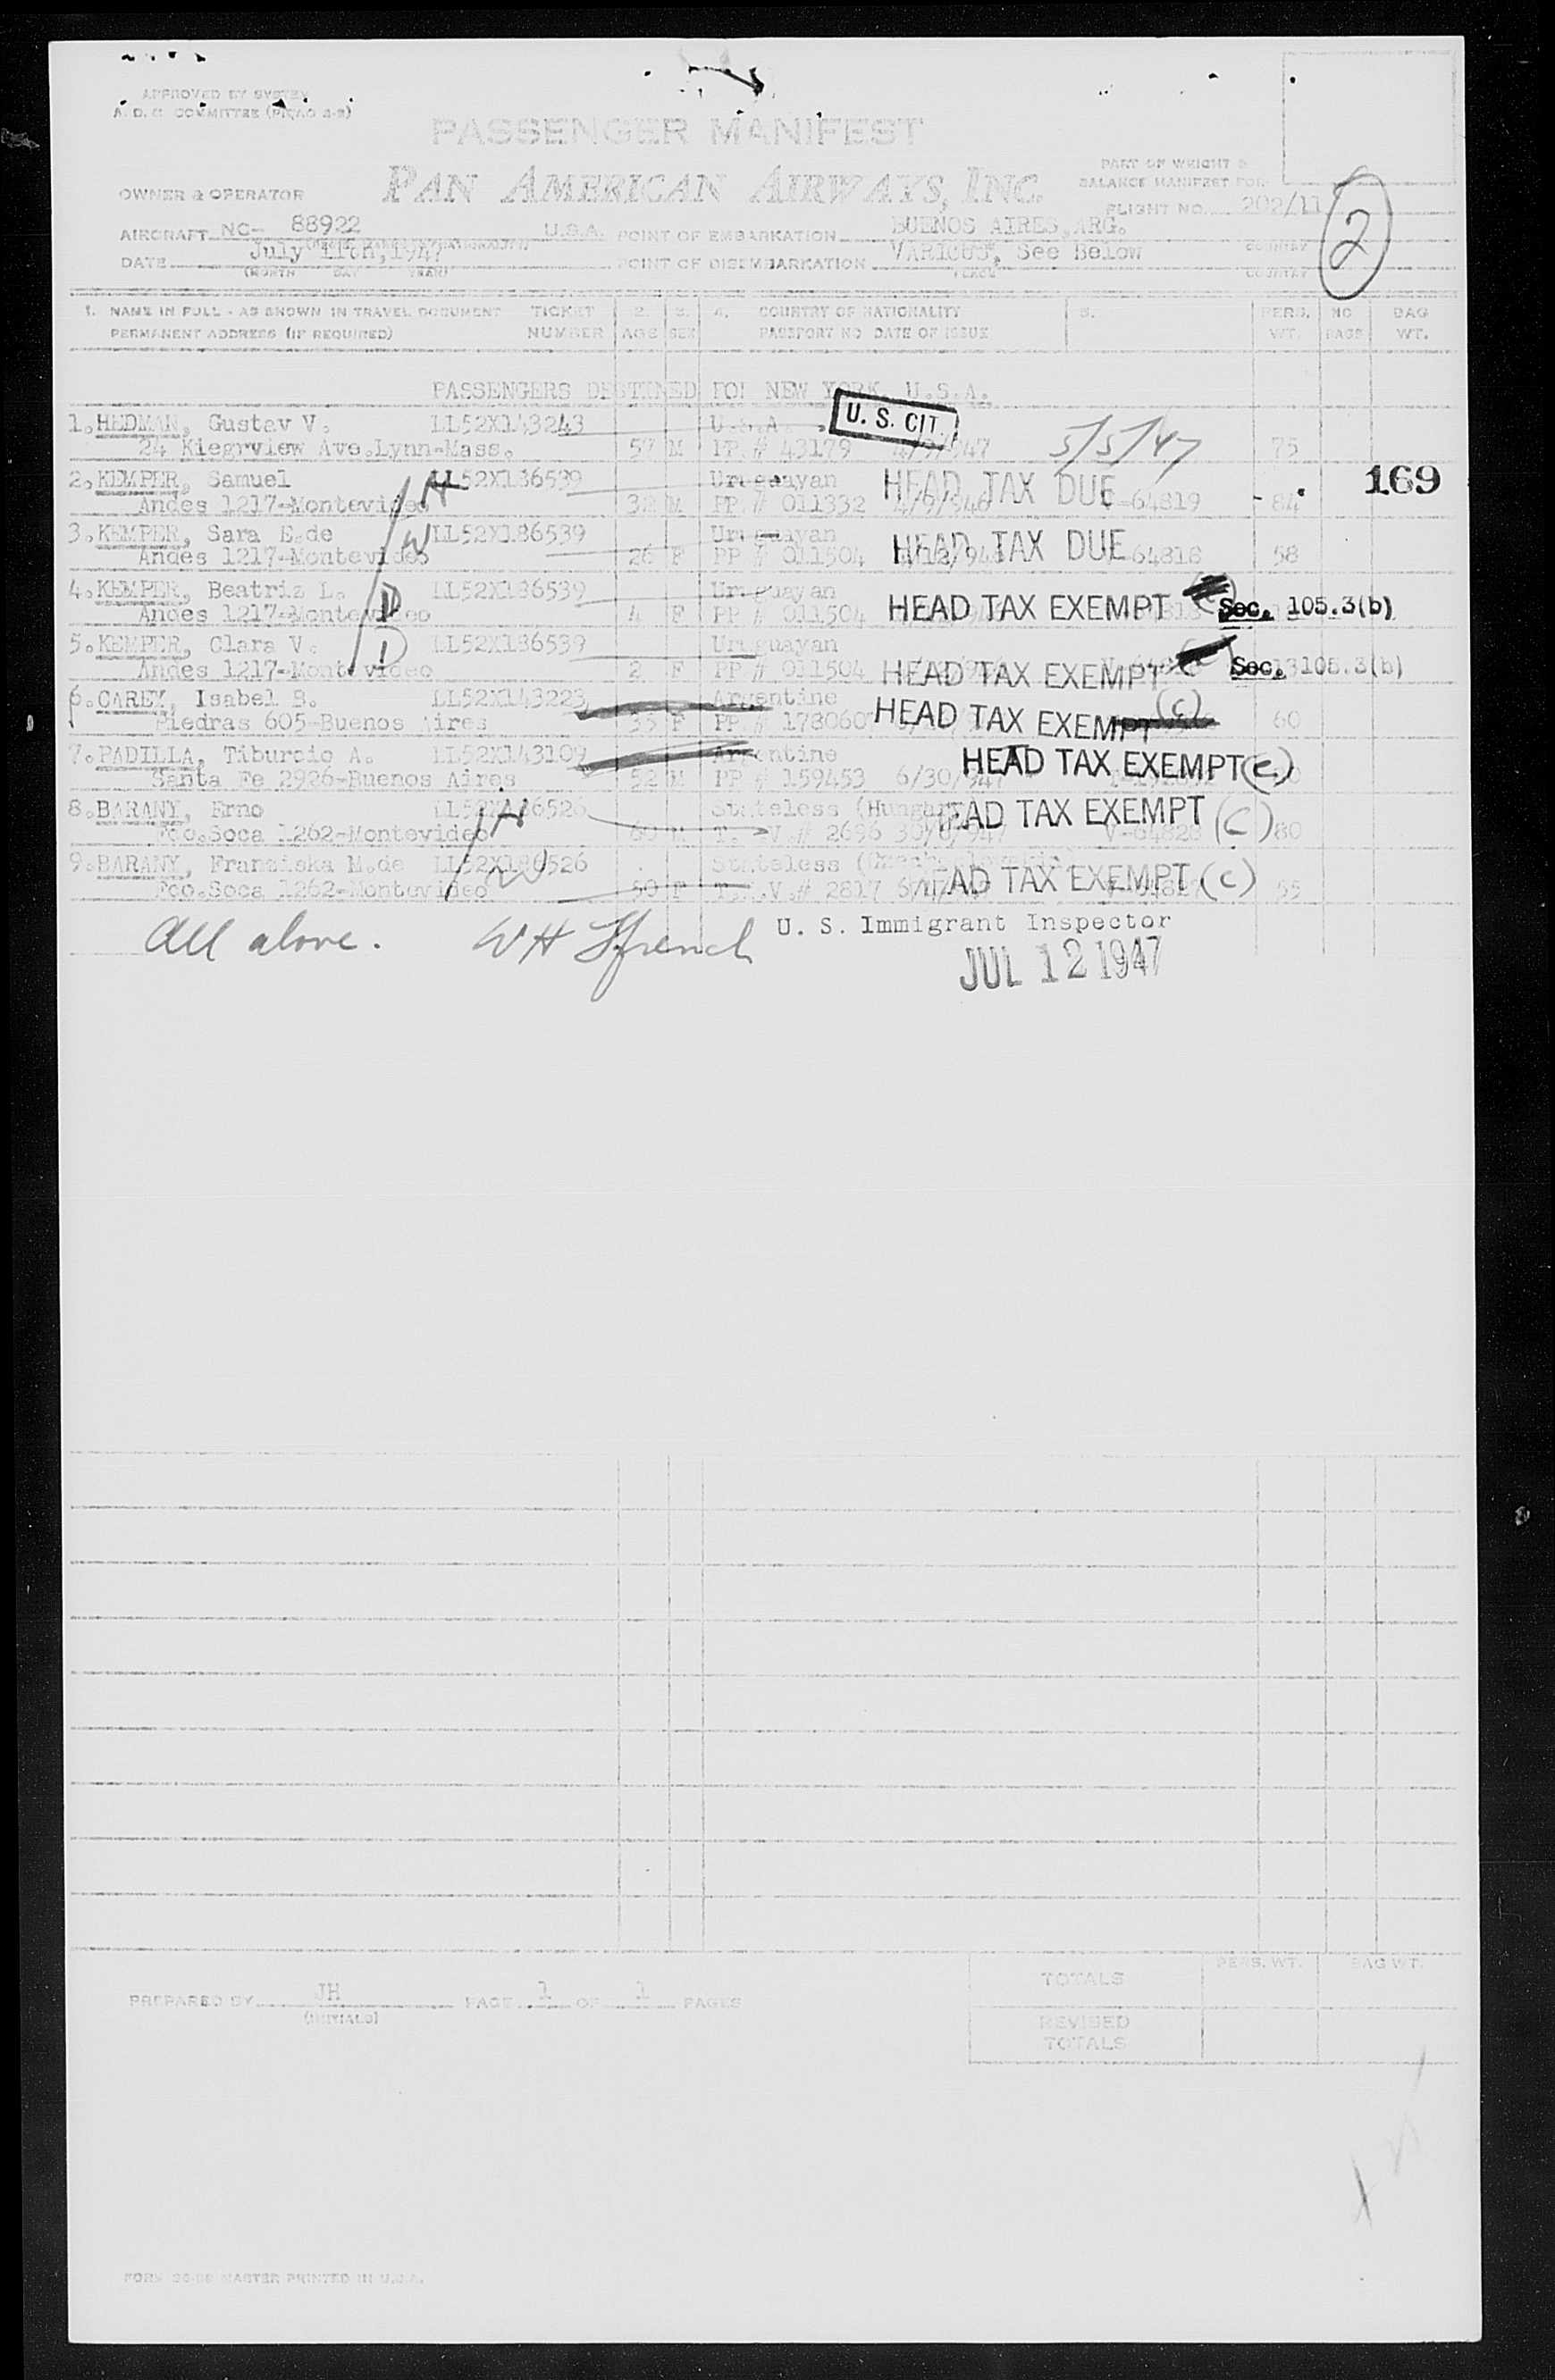 APPROVED BY SYSTEM
A. D. C. COMMITTEE
PASSENGER MANIFEST
PART OF WEIGHT &
BALANCE MANIFEST FOR
OWNER & OPERATOR PAN AMERICAN AIRWAYS, INC.
FLIGHT NO. 202/11
2
AIRCRAFT NC- 88922 U.S.A. POINT OF EMBARKATION BUENOS AIRES, ARG.
DATE July 11th, 1947 POINT OF DISEMBARKATION VARIOUS, See Below COUNTRY
(MONTH DAY YEAR) PLACE COUNTRY
1. NAME IN FULL - AS SHOWN IN TRAVEL DOCUMENT TICKET 2. 3. 4. COUNTRY OF NATIONALITY 5. PERS. NO BAG
PERMANENT ADDRESS (IF REQUIRED) NUMBER AGE SEX PASSPORT NO DATE OF ISSUE WT. BAGS WT.
PASSENGERS DESTINED TO: NEW YORK, U.S.A.
1. HEDMAN, Gustav V. LL52X143243 U.S.A. U. S. CIT.
24 Ave. Lynn-Mass. 57 M PP # 43179 5/5/47 75
2. KEMPER, Samuel LL52X186539 Uruguayan HEAD TAX DUE 169
Andes 1217-Montevideo H 32 M PP # 011332 4/9/946 V-64819 84
3. KEMPER, Sara E. de W LL52X186539 Uruguayan HEAD TAX DUE
Andes 1217-Montevideo 26 F PP # 011504 64818 58
4. KEMPER, Beatriz L. D LL52X186539 Uruguayan
Andes 1217-Montevideo 4 F PP # 011504 HEAD TAX EXEMPT Sec. 105.3(b)
5. KEMPER, Clara V. D LL52X186539 Uruguayan
Andes 1217-Montevideo 2 F PP # 011504 HEAD TAX EXEMPT Sec. 105.3(b)
6. CAREY, Isabel B. LL52X143223 Argentine
Piedras 605-Buenos Aires 35 F PP # 178060 HEAD TAX EXEMPT (c) 60
7. PADILLA, Tiburcio A. LL52X143109 Argentine HEAD TAX EXEMPT (c)
Santa Fe 2926-Buenos Aires 52 M PP # 159453 6/30/947
8. BARANY, Erno H Stateless HEAD TAX EXEMPT (c)
Fco. Soca 1262-Montevideo 60 M # 2696 V-64828 80
9. BARANY, Franziska M. de W LL52X186526 Stateless HEAD TAX EXEMPT (c)
Fco. Soca 1262-Montevideo 50 F # 2817 55
All above. W H Ffrench U. S. Immigrant Inspector
JUL 12 1947
PERS. WT. BAG WT.
TOTALS
PREPARED BY JH PAGE 1 OF 1 PAGES
(INITIALS)
REVISED
TOTALS
MASTER PRINTED IN U.S.A.